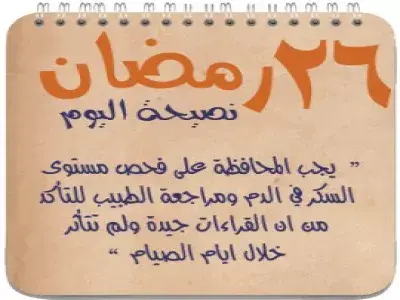 ٢٦ رمضان
نصيحة اليوم
" يجب المحافظة على فحص مستوى
السكر في الدم ومراجعة الطبيب للتأكد
من ان القراءات جيدة ولم تتأثر
خلال ايام الصيام "